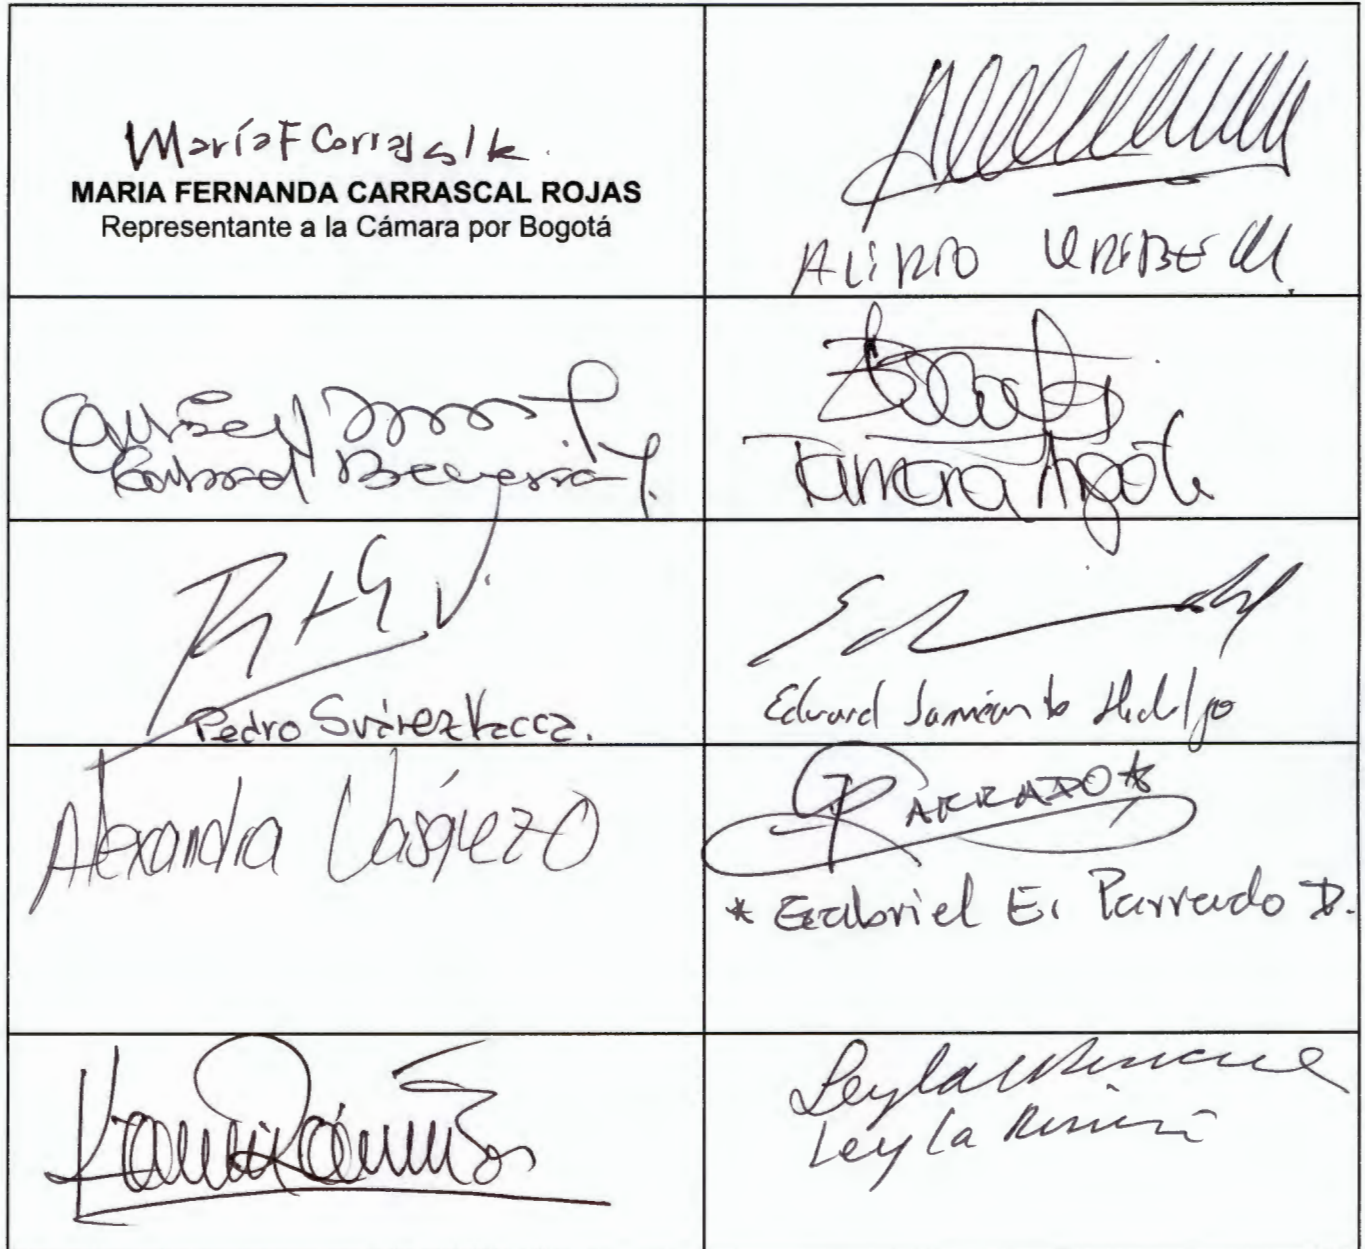 María F Carrascal R.
MARIA FERNANDA CARRASCAL ROJAS
Representante a la Cámara por Bogotá
ALIRIO URIBE M.
Gabriel Becerra Y.
Tamara Argote
Pedro Suárez Vacca.
Eduard Sarmiento Hidalgo
Alexandra Vásquez O
PARRADO *
* Gabriel E. Parrado D.
Leyla Rincón
Leyla Rincón